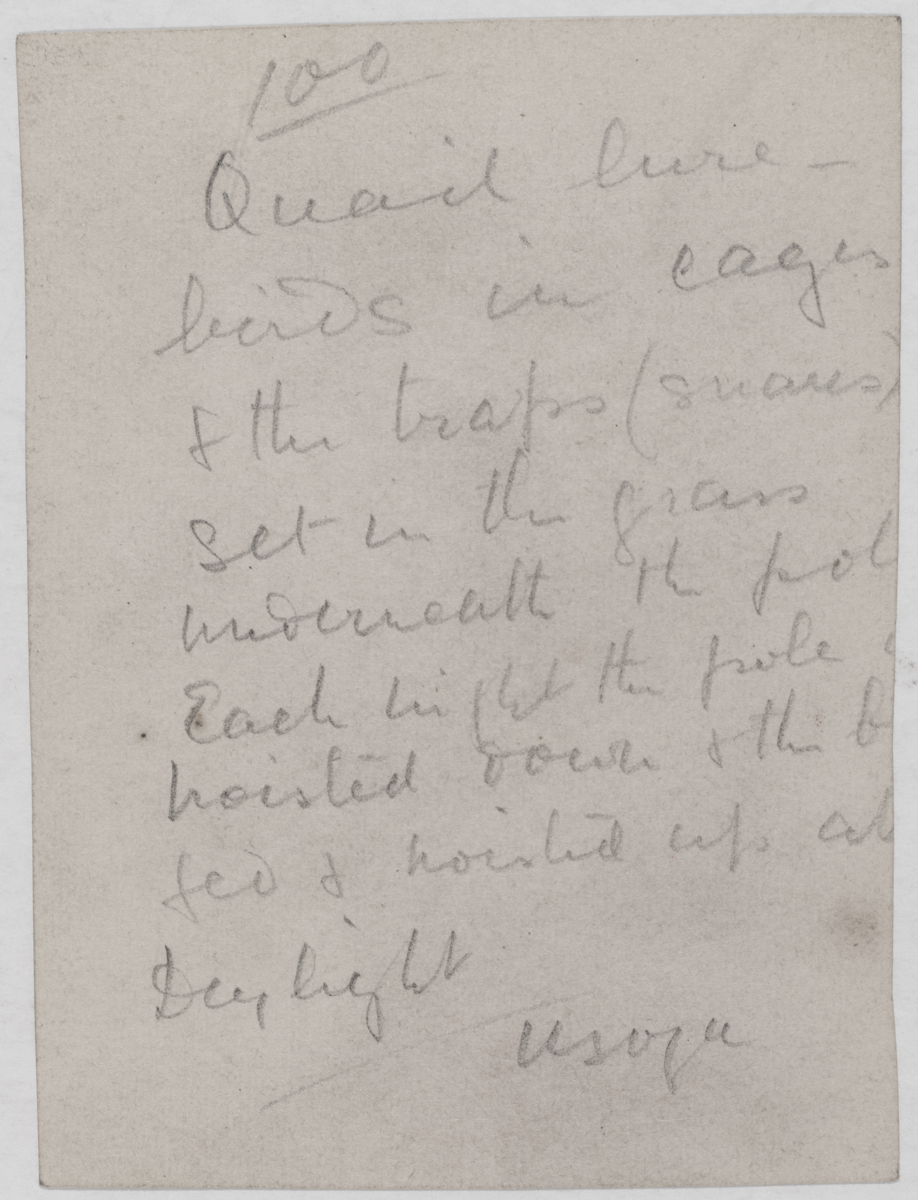 100
Quail lure -
birds in cages
& the traps (snares)
Set in the grass
underneath the pol
Each night the pole
hoisted down & the b
fed & hoisted up at
Daylight
Usoga